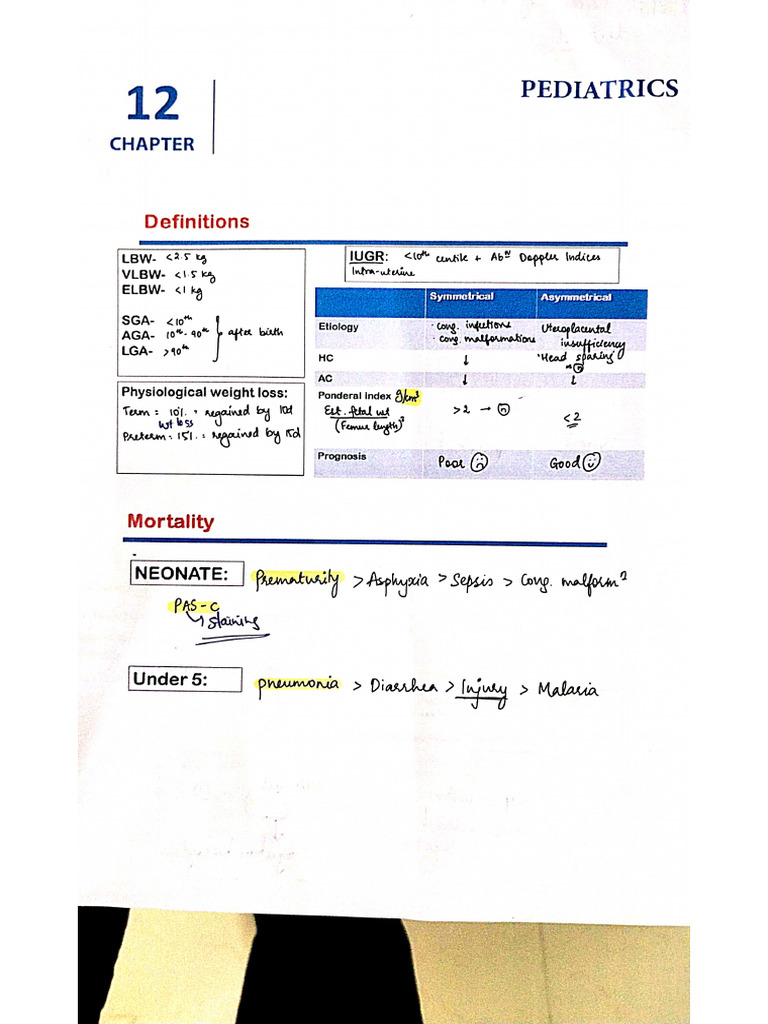 12
CHAPTER
PEDIATRICS
Definitions
LBW- <2.5 kg
VLBW- <1.5 kg
ELBW- <1 kg
SGA- <10th
AGA- 10th - 90th } after birth
LGA- >90th
Physiological weight loss:
Term = 10% = regained by 10d
wt loss
Preterm = 15% = regained by 15d
IUGR: <10th centile + AbN Doppler Indices
Intra-uterine
Symmetrical Asymmetrical
Etiology · cong. infections Uteroplacental
· cong. malformations insufficiency
HC ↓ 'Head sparing'
→ (n)
AC ↓ ↓
Ponderal index g/cm³
Est. fetal wt >2 → (n) <2
(Femur length)³
Prognosis Poor ☹ Good ☺
Mortality
NEONATE: Prematurity > Asphyxia > Sepsis > Cong. malformn
PAS-C
↳ staining
Under 5: pneumonia > Diarrhea > Injury > Malaria